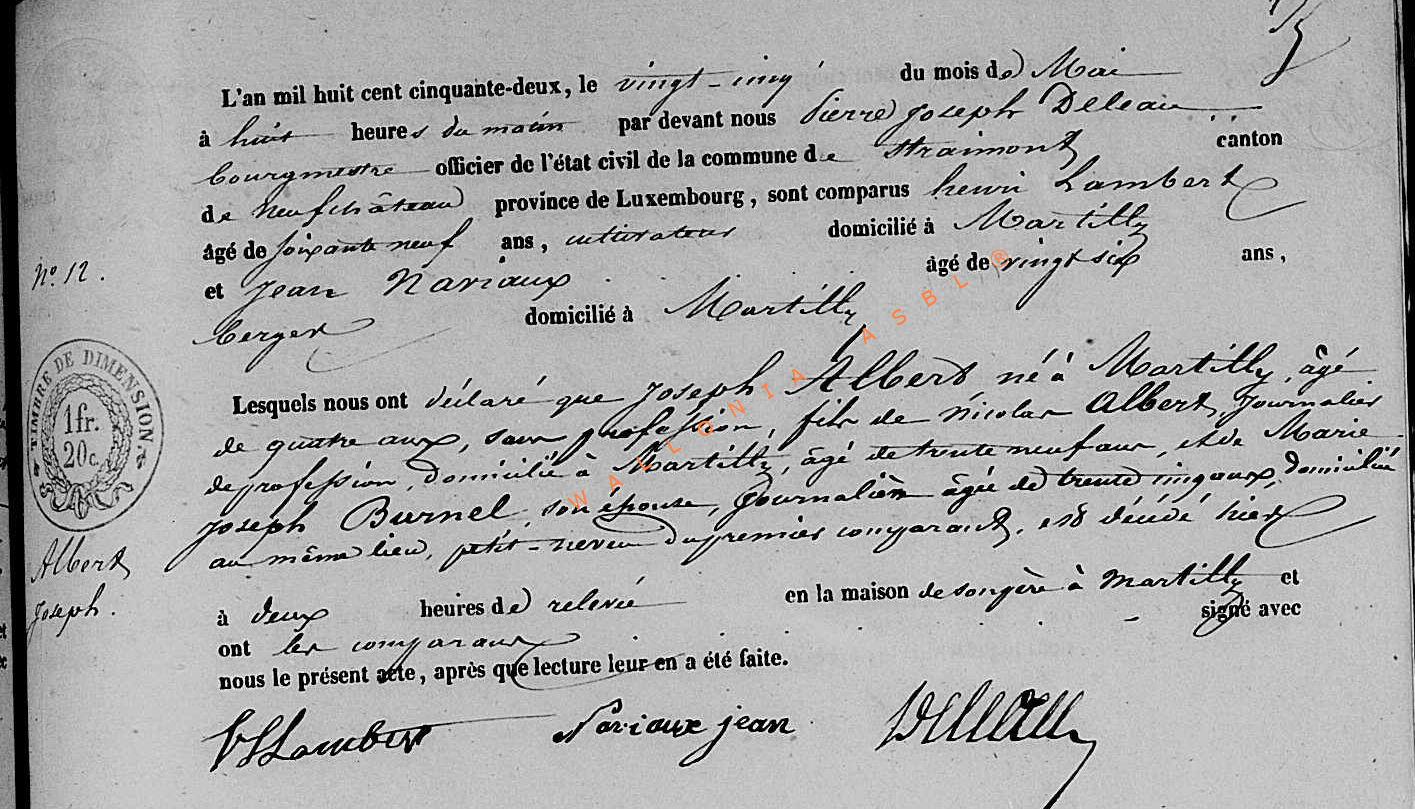 L'an mil huit cent cinquante-deux, le vingt-cinq du mois de Mai
à huit heures du matin par devant nous Pierre Joseph Deleau
bourgmestre officier de l'état civil de la commune de Straimont canton
de Neufchâteau province de Luxembourg, sont comparus henri Lambert
âgé de soixante neuf ans, cultivateur domicilié à Martilly
N° 12.
et Jean Nariaux âgé de vingt six ans,
berger domicilié à Martilly
Lesquels nous ont déclaré que Joseph Albert né à Martilly, âgé
de quatre ans, sans profession, fils de Nicolas Albert, Journalier
de profession, domicilié à Martilly, âgé de trente neuf ans, et de Marie
Joseph Burnel, son épouse, Journalière âgée de trente cinq ans, domiciliée
au même lieu, petit-neveu du premier comparant, est décédé hier
à deux heures de relevée en la maison de son père à Martilly et
ont les comparans signé avec
nous le présent acte, après que lecture leur en a été faite.
TIMBRE DE DIMENSION
1 fr.
20 c.
Albert
Joseph.
Lambert Nariaux jean Deleau
WALLONIA ASBL ®